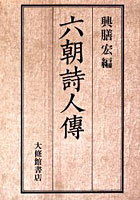 興膳宏編
六朝詩人傳
大修館書店